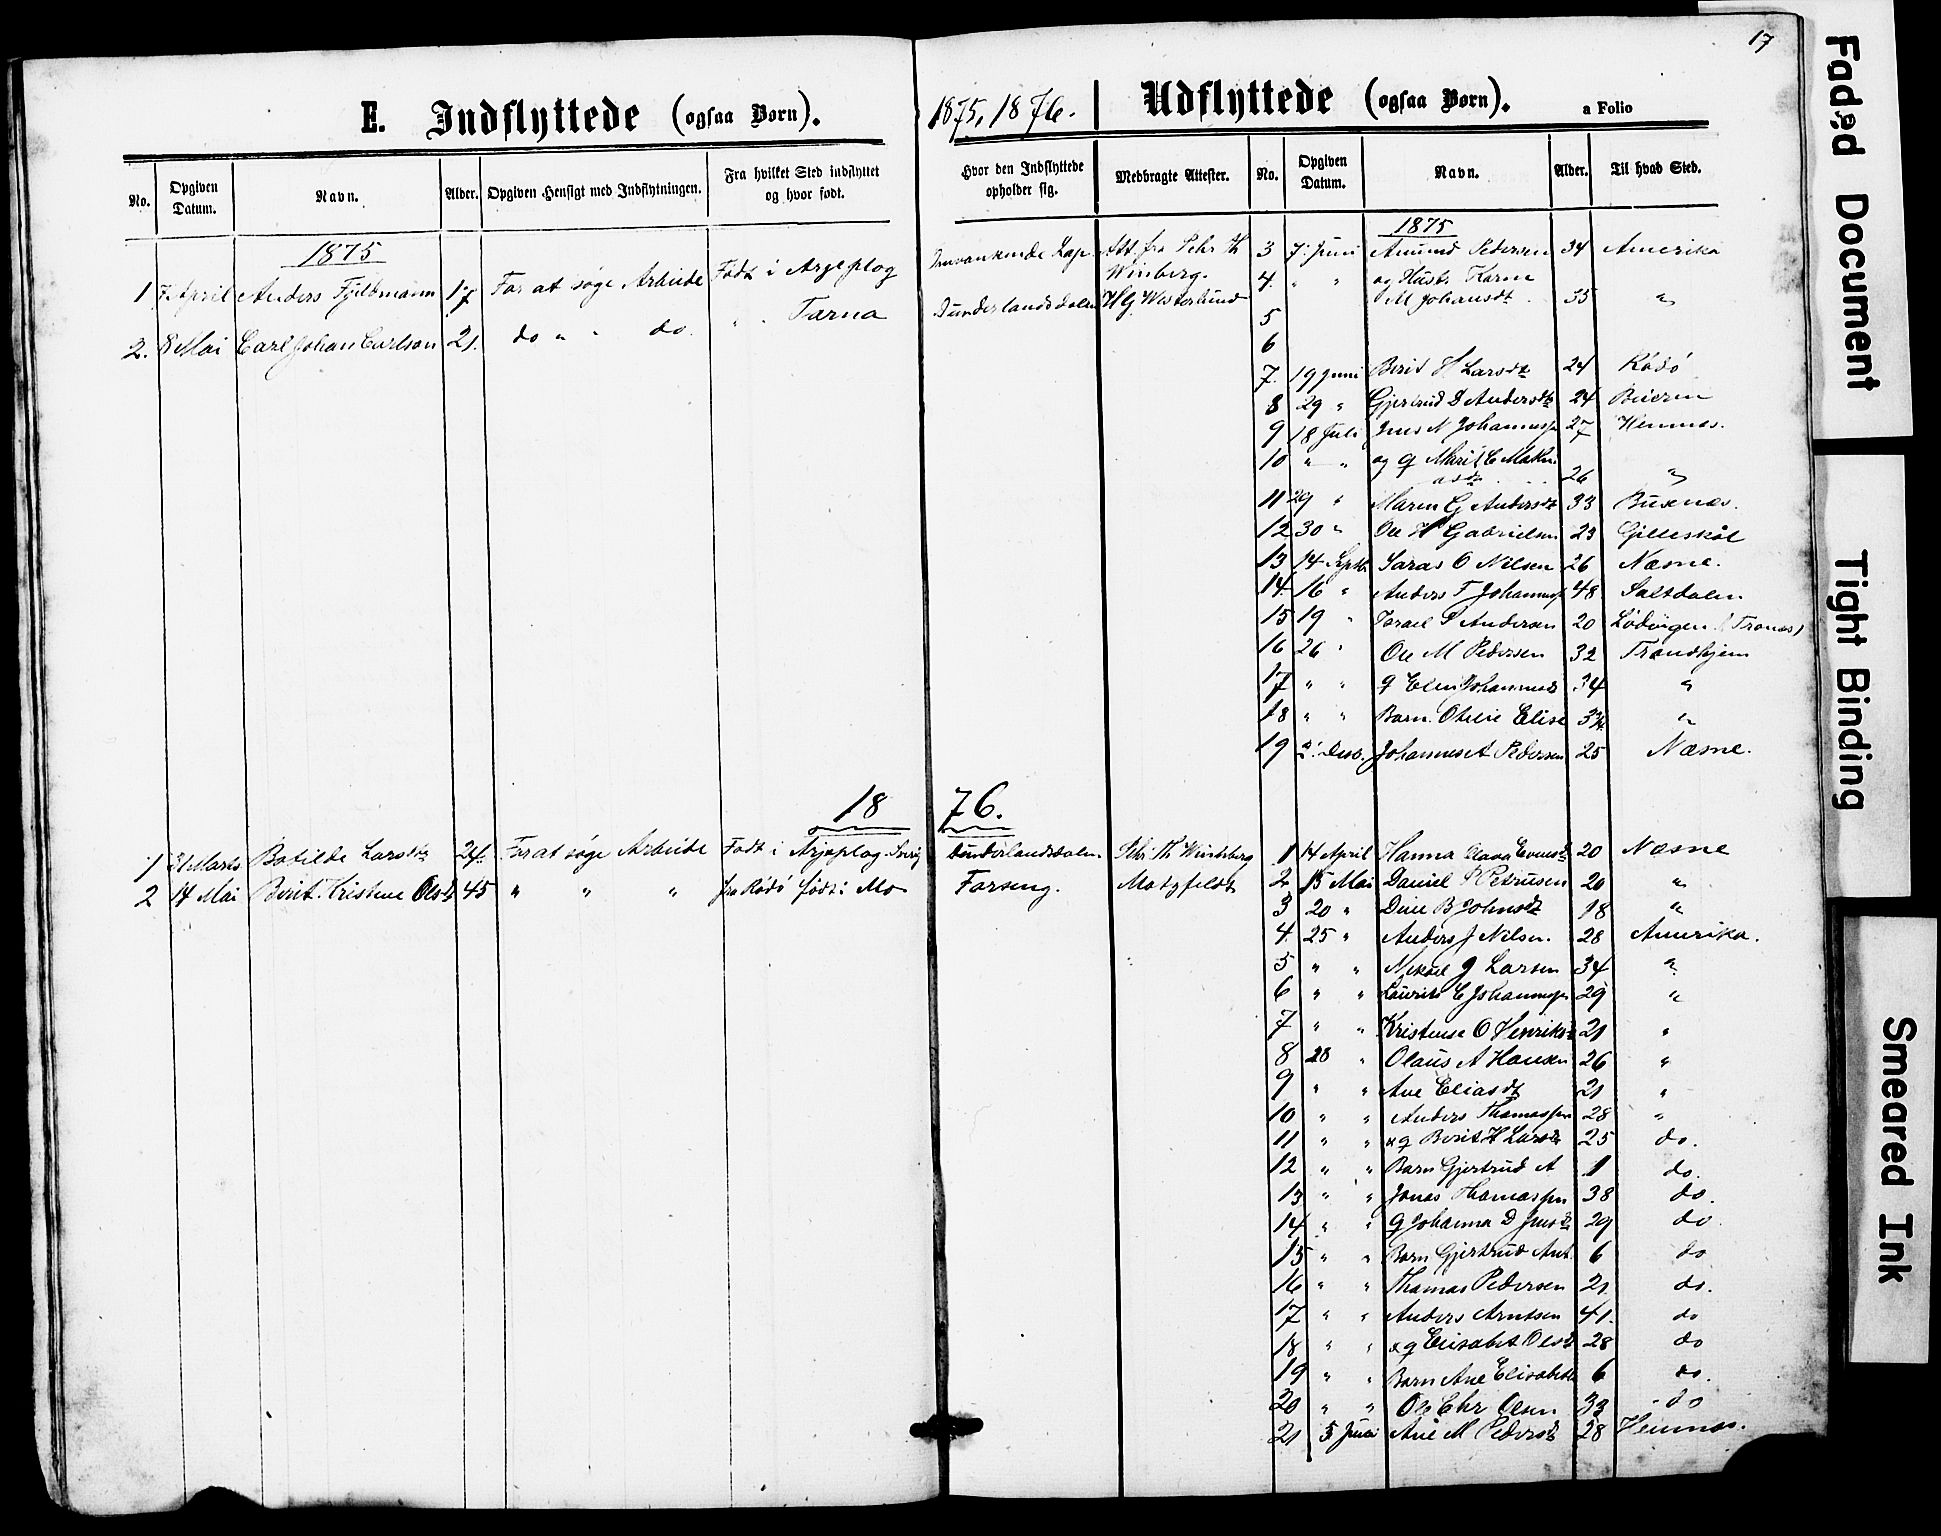 17
E. Indflyttede (ogsaa Børn).
1875, 1876.
Udflyttede (ogsaa Børn).
a Folio
No. Opgiven Datum. Navn. Alder. Opgiven Hensigt med Indflytningen. Fra hvilket Sted indflyttet og hvor født. Hvor den Indflyttede opholder sig. Medbragte Attester.
No. Opgiven Datum. Navn. Alder. Til hvad Sted.
1875
1 7 April Anders Fjellmann 17 For at søge Arbeide Født i Arjeplog Lap. Att. fra Winberg.
2. 8 Mai Carl Johan Carlson 21. do " " do. " " Tærna Dunderlandsdalen H G Westerlund
1875
3 7. Juni Amund Pedersen 34 Amerika
4. " " og Hustr. Karen
M Johansdt 35 "
5
6
7. 19 Juni Berit H Larsdt 24 Rødø
8 29 " Gjertrud D Andersdt 24 Beiern
9 18 Juli Jens N Johannesn 27 Hemnæs.
10 " " og q Marit C
26 "
11 29 " Maren G Andersdt 33 Buxnæs.
12 30 " Ole H Gabrielsen 23 Gilleskål
13 14 Septb Saras O Nilsen 26 Næsne.
14. 16 " Anders T Johannesn 48 Saltdalen
15 19 " Israel P Andersen 20 Lødingen (Tranøs)
16 26 " Ole M Pedersen 32 Trondhjem
17 " " q Elen Johannesd 34 "
18 " " Barn. Otelie Elise 3¾ "
19 2. Desb. Johannes A Pedersen 25 Næsne.
1876.
1 31 Marts Botilde Larsdt 24. For at søge Arbeide Født i Arjeplog Sverig Dunderlandsdalen. Schr. Th Windsberg
2 14 Mai Berit Kristine Olsdt 45 " " " fra Rødø født i Mo Farseng. Motzfeldt
1 14 April Hanna Olava Evensdt 20 Næsne
2 15 Mai Daniel P Petrusen 20 "
3 20 " Dine B Johnsdt 18 "
4. 25 " Anders J Nilsen. 28 Amerika.
5 " " Mikael J Larsen 34 "
6 " " Laurits E Johannesn 29 "
7 " " Kristense O Henriksd 21 "
8 28 " Olaus A Hansen 26 "
9 " " Ane Eliasdt 21 "
10 " " Anders Thomassen 28 "
11 " " og q Berit H Larsdt 25 do.
12 " " Barn Gjertrud A 1 do.
13 " " Jonas Thomassen 38 do.
14 " " q Johanna D Jensdt 29 do.
15 " " Barn Gjertrud Ant. 6 do
16 " " Thomas Pedersen 21 do.
17 " " Anders Arntsen 41. do
18 " " og q Elisabet Olsdt 28 do
19 " " Barn Ane Elisabeth 6 do.
20 " " Ole Chr Olsen 33 do
21 5 Juni Ane M Pedersdt 28 Hemnæs.
Faded Document
Tight Binding
Smeared Ink